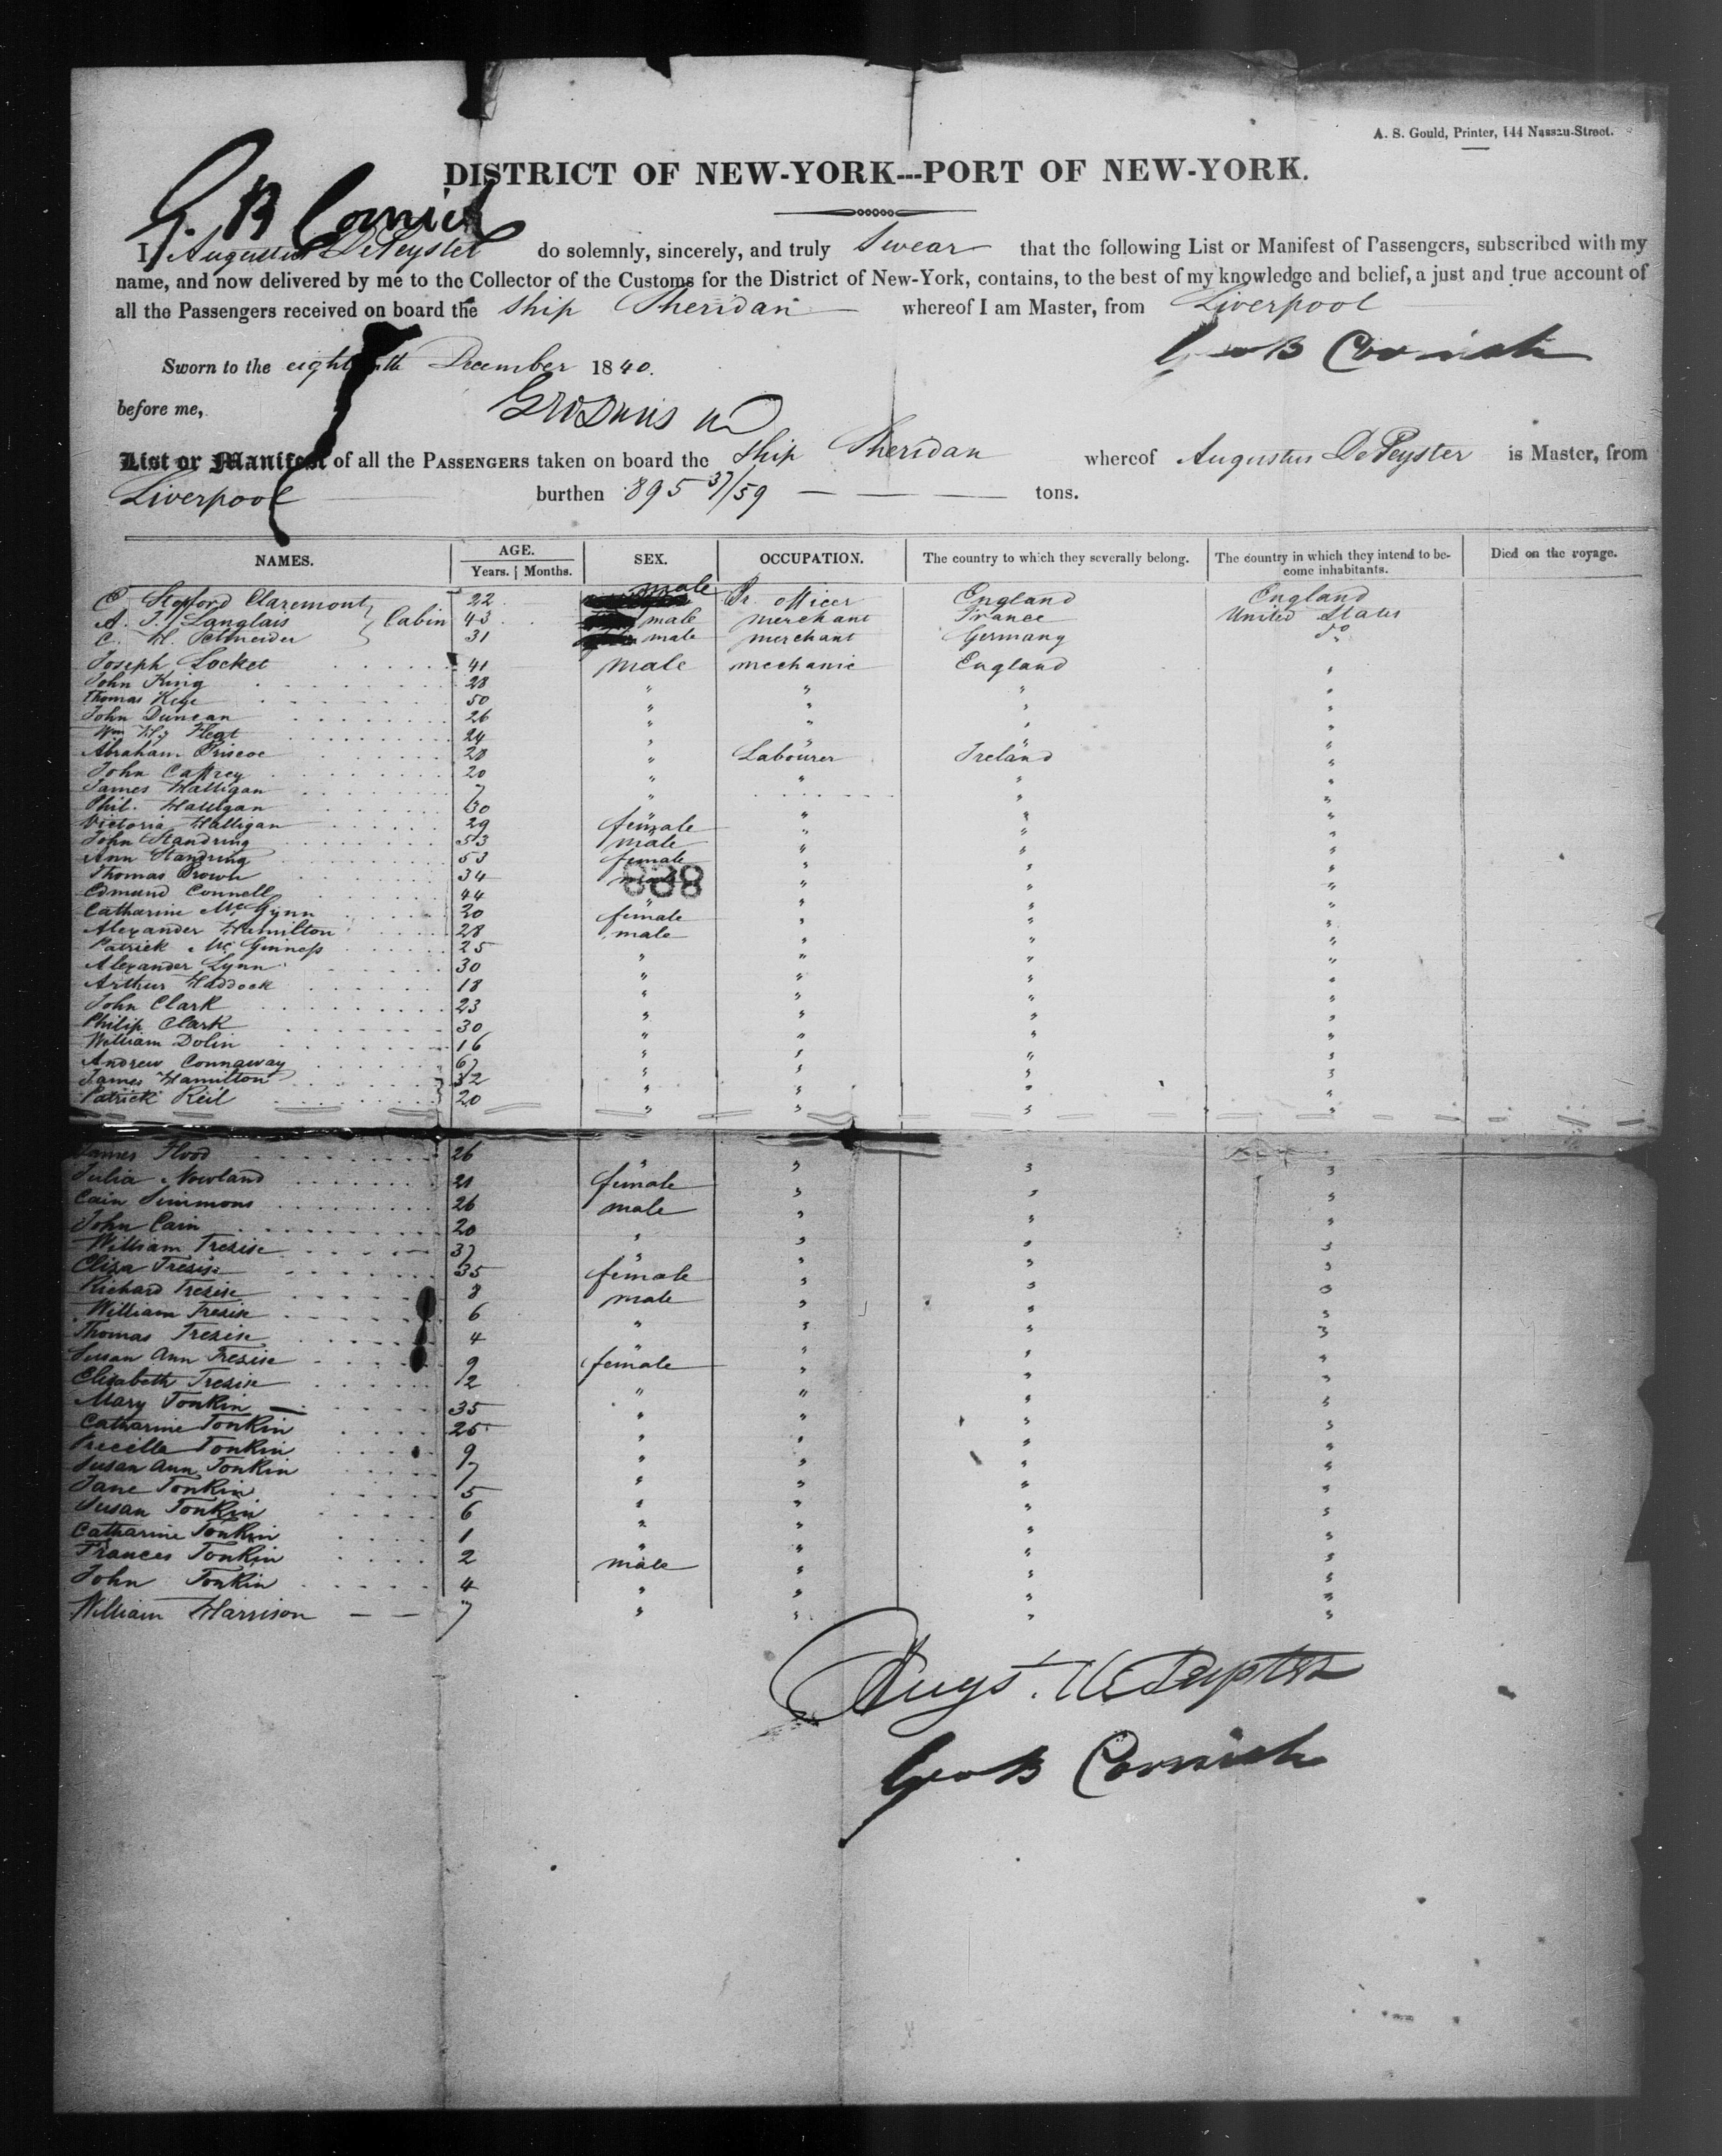 A. S. Gould, Printer, 144 Nassau-Street.
DISTRICT OF NEW-YORK---PORT OF NEW-YORK.
G. B Cornish
I, Augustus DePeyster do solemnly, sincerely, and truly Swear that the following List or Manifest of Passengers, subscribed with my
name, and now delivered by me to the Collector of the Customs for the District of New-York, contains, to the best of my knowledge and belief, a just and true account of
all the Passengers received on board the Ship Sheridan whereof I am Master, from Liverpool
Geo B Cornish
Sworn to the eighteenth December 1840.
before me,
List or Manifest of all the PASSENGERS taken on board the Ship Sheridan whereof Augustus DePeyster is Master, from
Liverpool burthen 895 tons.
NAMES. AGE. Years. Months. SEX. OCCUPATION. The country to which they severally belong. The country in which they intend to become inhabitants. Died on the voyage.
C. Stopford Claremont 22 male Br. officer England England
A. J. Langlais Cabin 43 male merchant France United States
C. H. Schneider 31 male merchant Germany Do
Joseph Locket 41 male mechanic England "
John King 28 " " " "
Thomas 50 " " " "
John Duncan 26 " " " "
Wm Hy 24 " " " "
Abraham Briscoe 28 " Labourer Ireland "
John Caffrey 20 " " " "
James Halligan 7 " " "
Phil. Halligan 30 " " " "
Victoria Halligan 29 female " " "
John Standring 53 male " " "
Ann Standring 53 female " " "
Thomas Brown 34 male " " "
888
Edmund Connell 44 " " " "
Catharine McGynn 20 female " " "
Alexander Hamilton 28 male " " "
Patrick McGinness 25 " " " "
Alexander Lynn 30 " " " "
Arthur Haddock 18 " " " "
John Clark 23 " " " "
Philip Clark 30 " " " "
William Dolin 16 " " " "
Andrew Connaway " " " "
James Hamilton 32 " " " "
Patrick Reil 20 " " " "
James Flood 26 " " " "
Julia Nowland 21 female " " "
Cain Simmons 26 male " " "
John Cain 20 " " " "
William Trezise 37 " " " "
Eliza Trezise 35 female " " "
Richard Trezise 8 male " " "
William Trezise 6 " " " "
Thomas Trezise 4 " " " "
Susan Ann Trezise 9 female " " "
Elizabeth Trezise " " " "
Mary Tonkin 35 " " " "
Catharine Tonkin 25 " " " "
Tonkin 9 " " " "
Susan Ann Tonkin 7 " " " "
Jane Tonkin 5 " " " "
Susan Tonkin 6 " " " "
Catharine Tonkin 1 " " " "
Frances Tonkin 2 male " " "
John Tonkin 4 " " " "
William Harrison 7 " " " "
Augs. DePeyster
Geo B Cornish